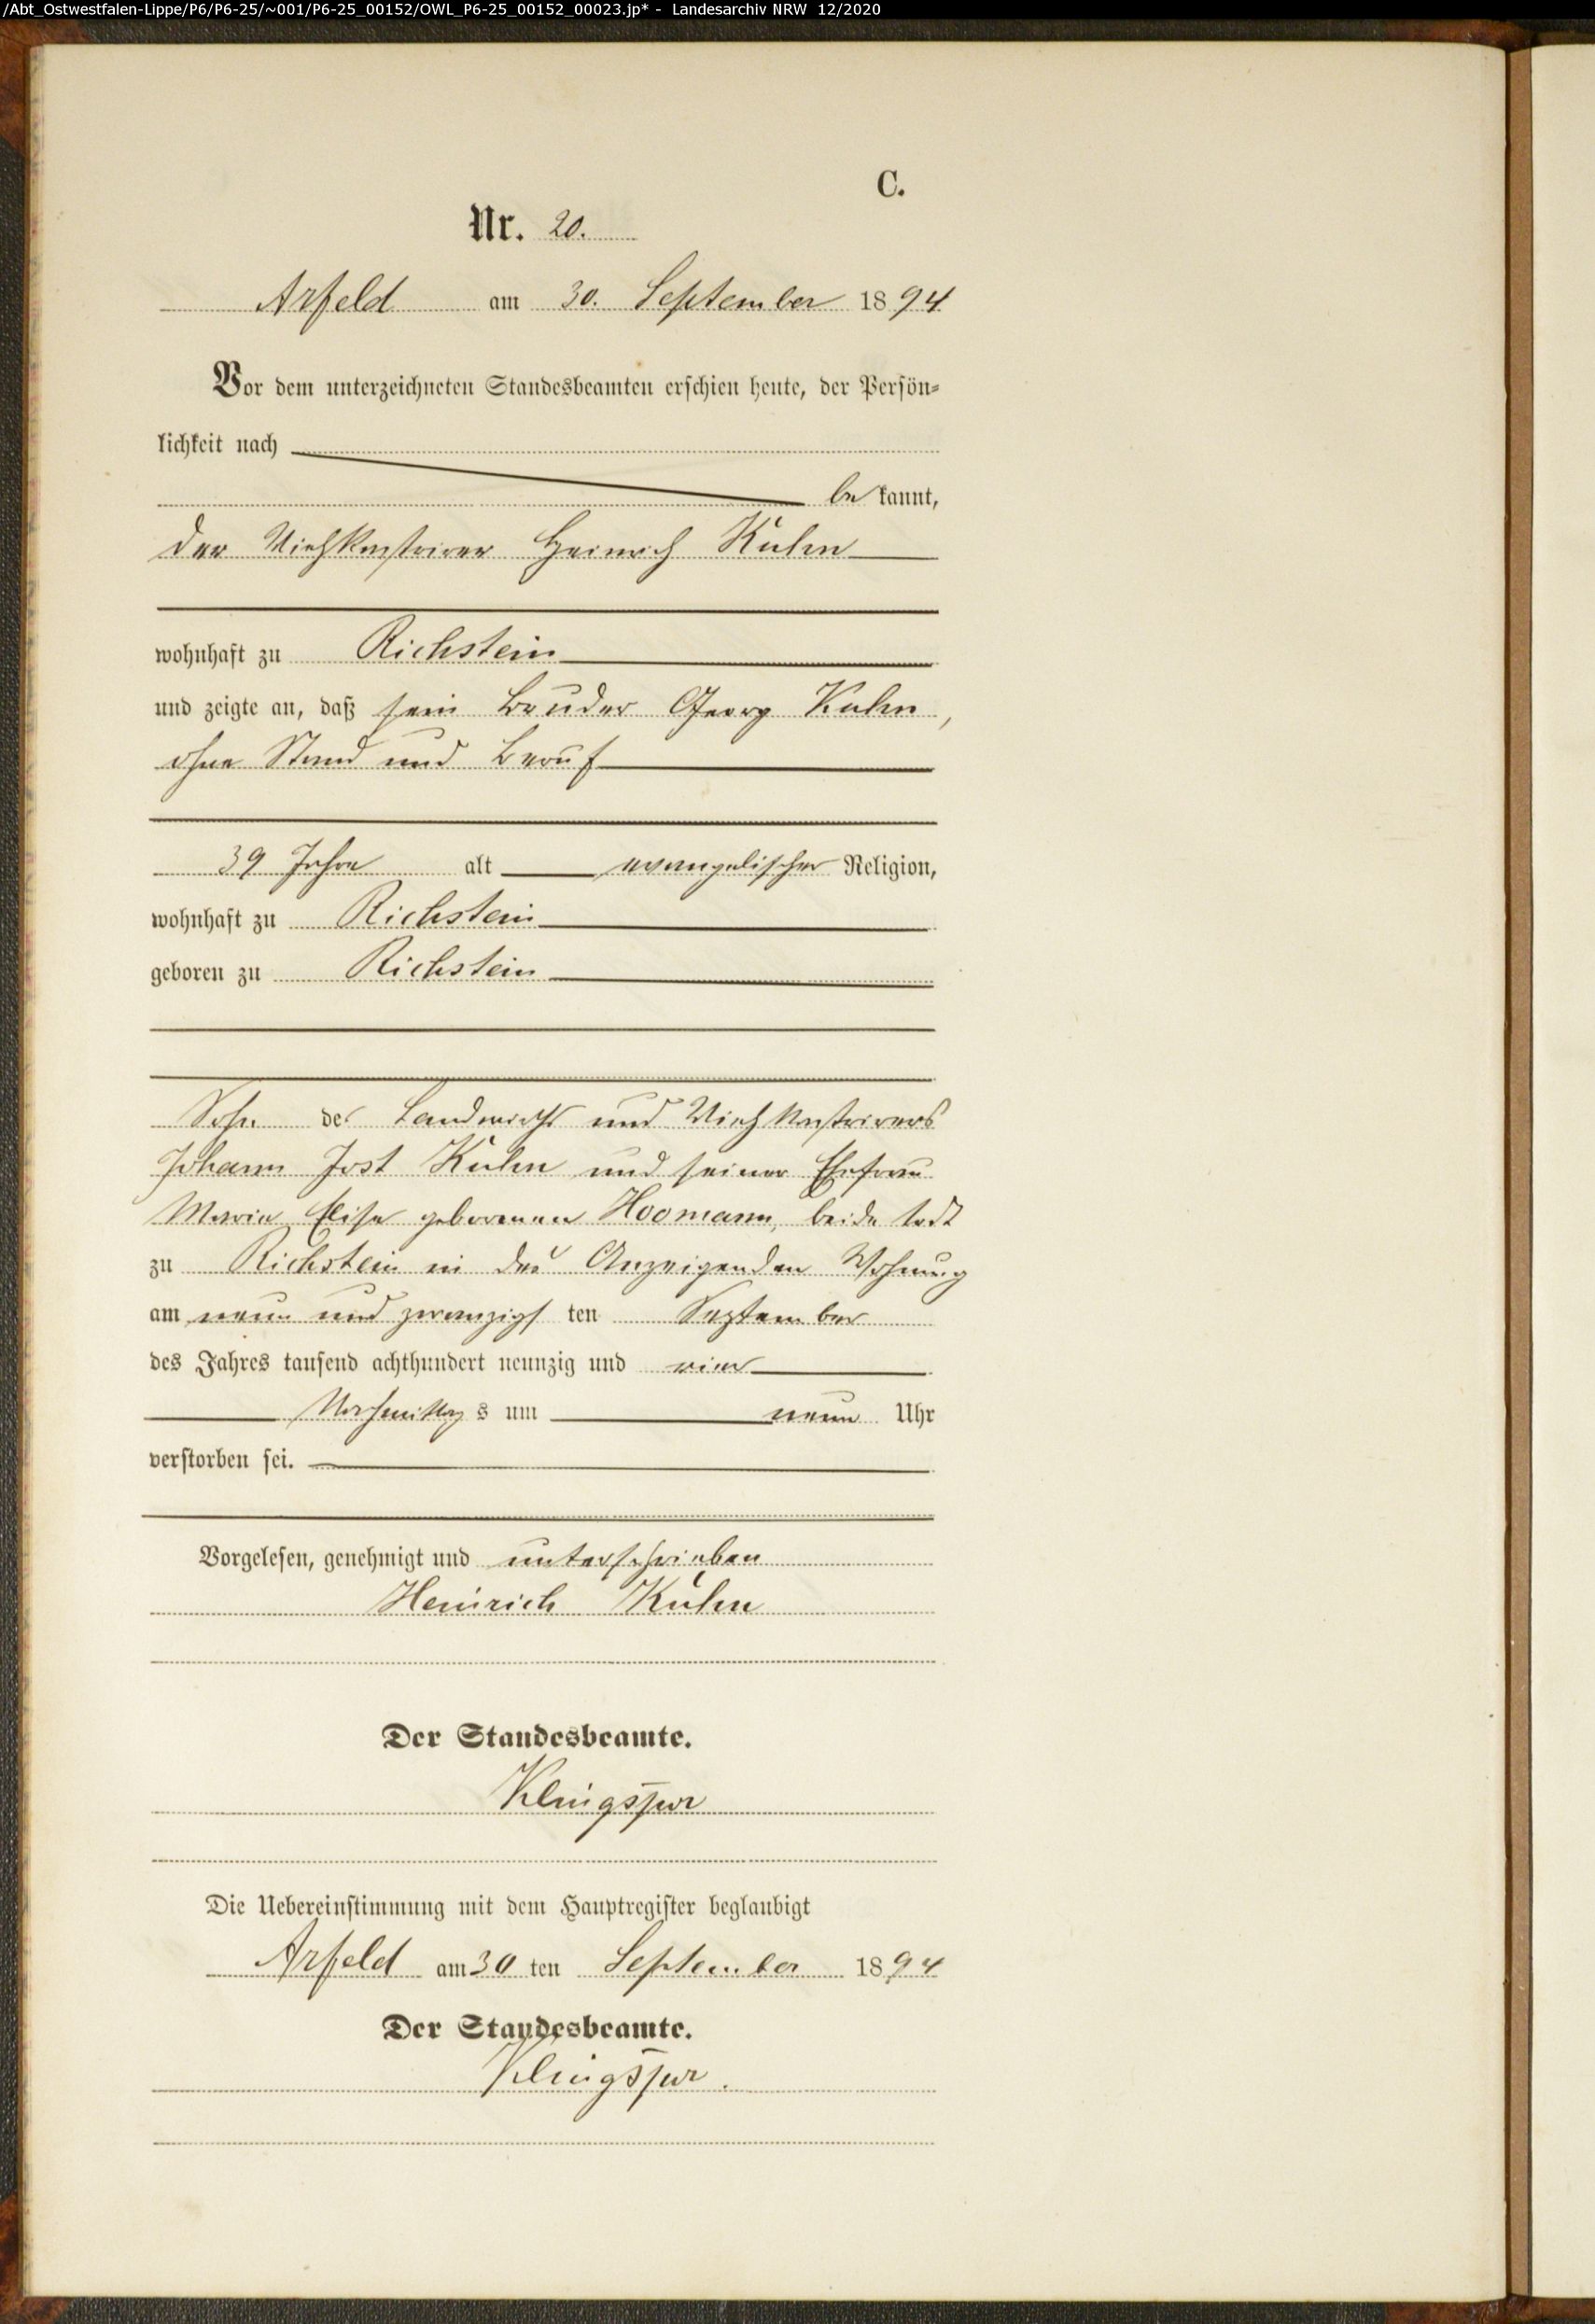 /Abt_Ostwestfalen-Lippe/P6/P6-25/~001/P6-25_00152/OWL_P6-25_00152_00023.jp* - Landesarchiv NRW 12/2020
C.
Nr. 20.
Arfeld am 30. September 1894
Vor dem unterzeichneten Standesbeamten erschien heute, der Persön-
lichkeit nach
bekannt,
der Viehkastrirer Heinrich Kuhn
wohnhaft zu Richstein
und zeigte an, daß sein Bruder Georg Kuhn,
ohne Stand und Beruf
39 Jahre alt evangelischer Religion,
wohnhaft zu Richstein
geboren zu Richstein
Sohn des Landwirths und Viehkastrirers
Johann Jost Kuhn und seiner Ehefrau
Maria Elise geborenen Hoomann, beide todt
zu Richstein in des Anzeigenden Wohnung
am neun und zwanzigsten September
des Jahres tausend achthundert neunzig und vier
um neun Uhr
verstorben sei.
Vorgelesen, genehmigt und unterschrieben
Heinrich Kuhn
Der Standesbeamte.
Klingspor
Die Uebereinstimmung mit dem Hauptregister beglaubigt
Arfeld am 30 ten September 1894
Der Standesbeamte.
Klingspor.